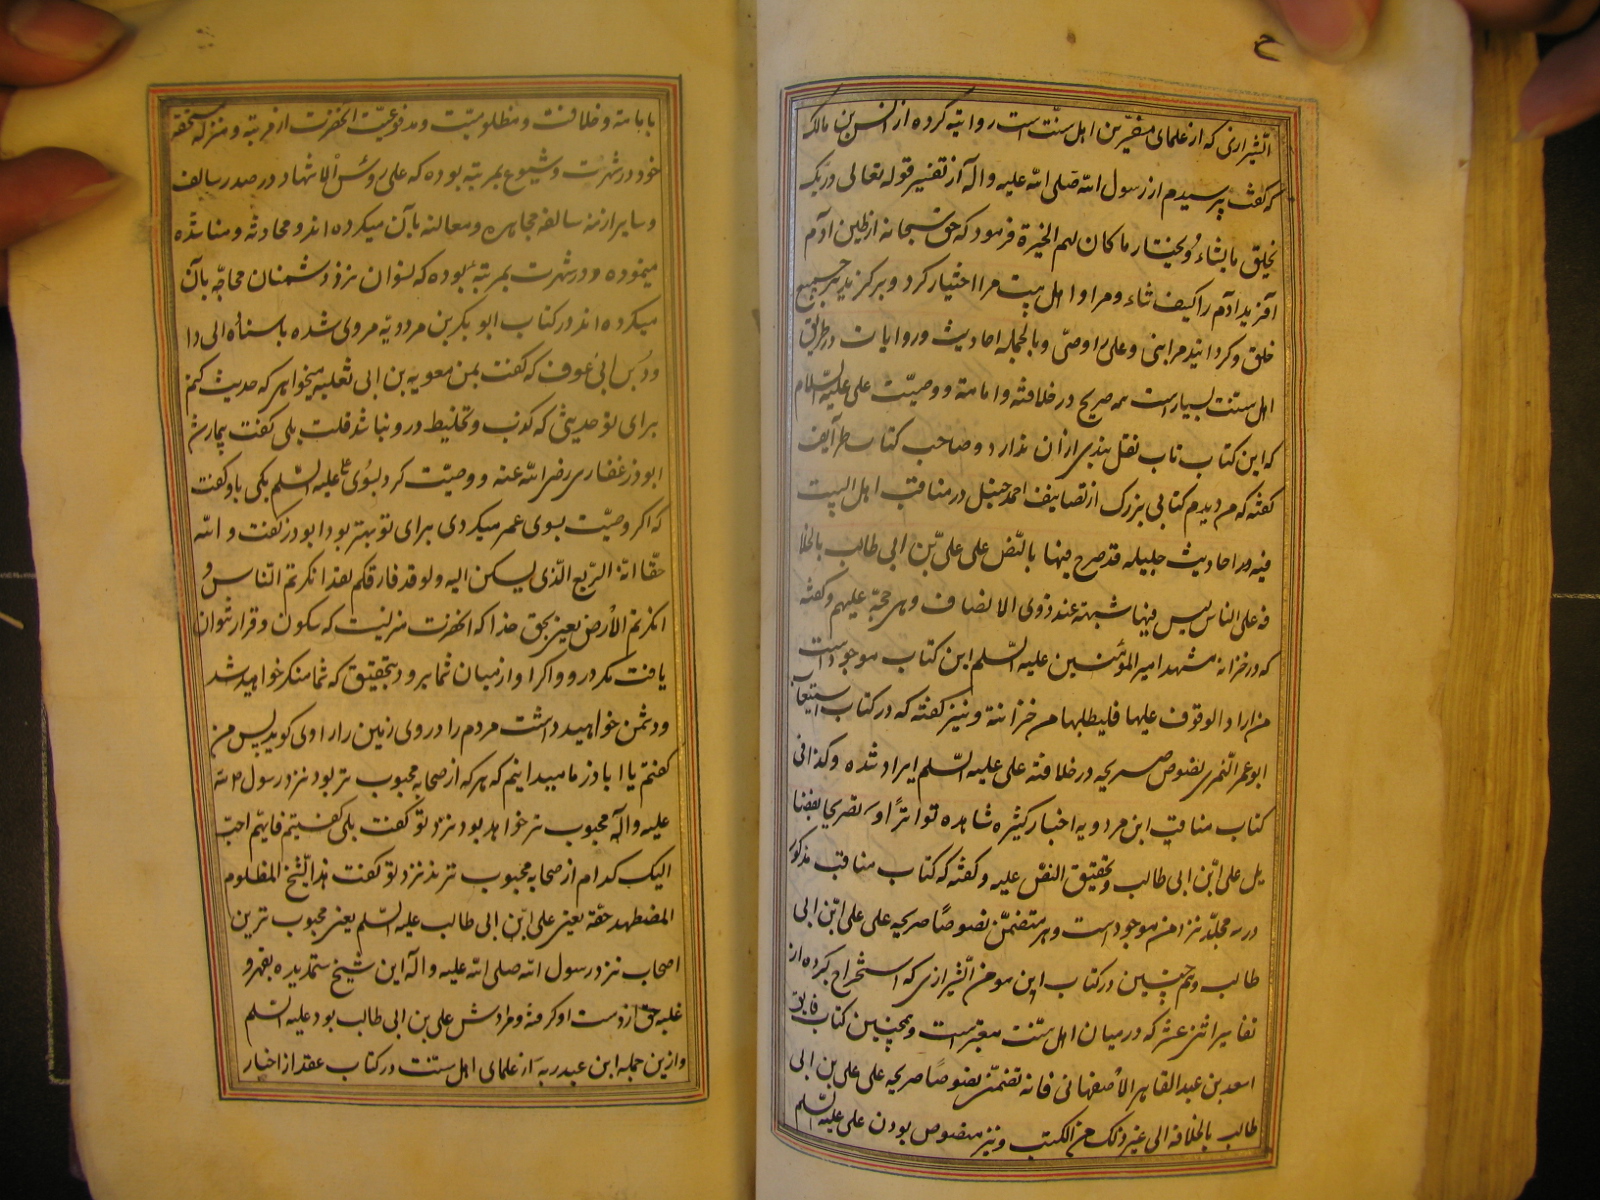 ح
الشیرازی که از علمای مفسرین اهل سنت است روایة کرده از انس بن مالک
که گفت پرسیدم از رسول الله صلی الله علیه واله از تفسیر قوله تعالی وربک
یخلق ما یشاء ویختار ما کان لهم الخیرة فرمود که حق سبحانه از طین آدم
آفرید آدم را کیف شاء ومرا و اهل بیت مرا اختیار کرد و برگزید بر جمیع
خلق وکردانید مرا نبی وعلی را وصی وبالجمله احادیث وروایات در طرایق
اهل سنت بسیار است همه صریح در خلافة وامامة ووصیت علی علیه السلام
که این کتاب تاب نقل بندی از آن ندارد وصاحب کتاب طرایف
گفته که من دیدم کتابی بزرک از تصانیف احمد حنبل در مناقب اهل البیت
فیه احادیث جلیله قد صرح فیها بالنص علی علی بن ابی طالب بالخلا
فة علی الناس لیس فیها شبهة عند ذوی الانصاف وهی حجة علیهم وگفته
که در خزانه مشهد امیر المؤمنین علیه السلم این کتاب موجود است
من اراد الوقوف علیها فلیطلبها من خزانة ونیز گفته که در کتاب استیعاب
ابو عمر النمری نصوص صریحه در خلافة علی علیه السلم ایراد شده وکذا فی
کتاب مناقب ابن مردویه اخبار کثیره شاهده تواترًا وتصریحا بفضا
یل علی ابن ابی طالب وتحقیق النص علیه وگفته که کتاب مناقب مذکور
در سه مجلد نزد من موجود است وهو متضمن نصوصًا صریحه علی علی ابن ابی
طالب وهم چنین در کتاب ابن مومن الشیرازی که استخراج کرده از
تفاسیر اثنی عشر که در میان اهل سنت معتبر است وهمچنین کتاب فایق
اسعد بن عبد القاهر الاصفهانی فانه تضمن نصوصًا صریحه علی علی بن ابی
طالب بالخلافة الی غیر ذلک من الکتب ونیز منصوص بودن علی علیه السلم
بامامة وخلافت ومظلومیت ومدفوعیت انحضرت از مرتبه ومنزله مستحقه
خود در شهرت وشیوع بمرتبه بوده که علی رؤس الاشهاد در صدر سالف
وسایر ازمنه سالفه مجاهره ومعالنه بآن میکرده اند ومحادثه ومناشده
مینموده ودر شهرت بمرتبه بوده که نسوان نزد دشمنان محاجه بآن
میکرده اند در کتاب ابو بکر بن مردویه مروی شده باسناه الی دا
ود بن ابی عوف که گفت بمن معویه بن ابی ثعلبه میخواهی که حدیث کنم
برای تو حدیثی که کذب وتخلیط درو نباشد قلت بلی گفت بیمار شد
ابوذر غفاری رضی الله عنه ووصیت کرد بسوی علی علیه السلم یکی باو گفت
که اگر وصیت بسوی عمر میکردی برای تو بهتر بود ابوذر گفت والله
حقا انه الربع الذی یسکن الیه ولو قد فارقکم لقد انکرتم الناس و
انکرتم الارض یعنی بحق خدا که انحضرت منزلیست که سکون وقرار توان
یافت مگر درو واکر او از میان شما برود بتحقیق که شما منکر خواهید شد
ودشمن خواهید داشت مردم را وروی زمین را راوی کوید پس من
گفتم یا ابا ذر ما میدانیم که هر که از صحابه محبوب تر بود نزد رسول الله
علیه وآله محبوب تر خواهد بود نزد تو گفت بلی گفتیم فایهم احب
الیک کدام از صحابه محبوب ترند نزد تو گفت هذا الشیخ المظلوم
المضطهد حقه یعنی علی ابن ابی طالب علیه السلم یعنی محبوب ترین
اصحاب نزد رسول الله صلی الله علیه واله این شیخ ستمدیده بقهر و
غلبه حق از دست او گرفته ومرادش علی بن ابی طالب بود علیه السلم
وازین جمله ابن عبد ربه از علمای اهل سنت در کتاب عقد از اخبار